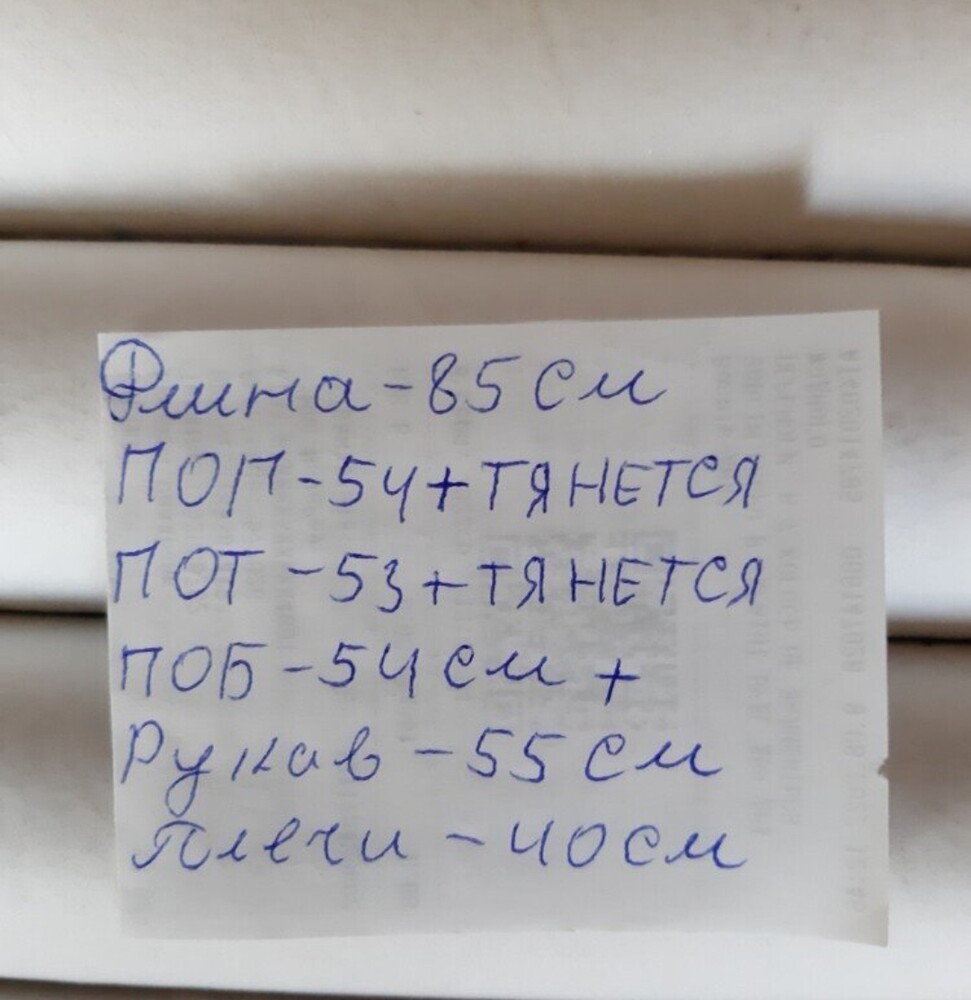 Длина - 85 см
ПОП - 54 + ТЯНЕТСЯ
ПОТ - 53 + ТЯНЕТСЯ
ПОБ - 54 см +
Рукав - 55 см
Плечи - 40 см